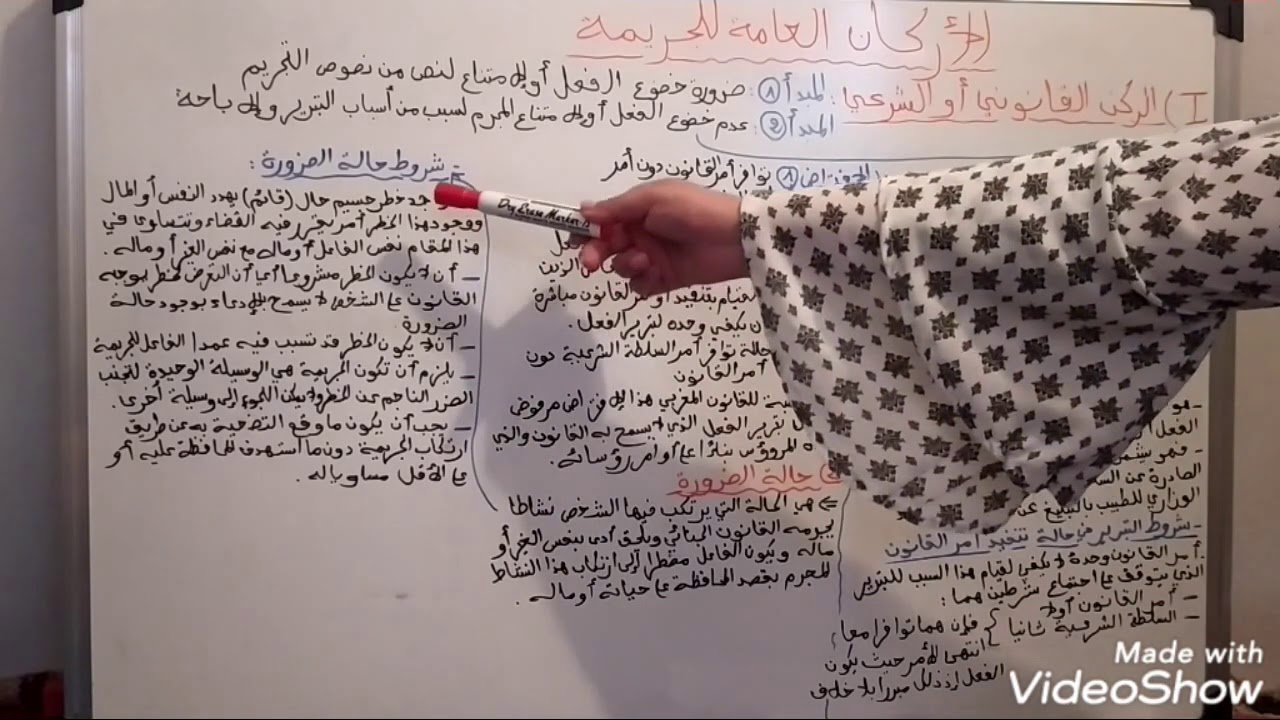 الأركان العامة للجريمة
I) الركن القانوني أو الشرعي: المبدأ ①: ضرورة خضوع الفعل أو الامتناع لنص من نصوص التجريم
المبدأ ②: عدم خضوع الفعل أو الامتناع المجرم لسبب من أسباب التبرير والإباحة
الافتراض ① توافر أمر القانون دون أمر
فعل
القيام بتنفيذ أوامر القانون مباشرة
ن يكفي وحده لتبرير الفعل.
حالة توافر أمر السلطة الشرعية دون
أمر القانون
ية للقانون المغربي هذا الافتراض مرفوض
تبرير الفعل الذي لا يسمح به القانون والذي
ه المرؤوس بناءا على أوامر رؤسائه.
حالة الضرورة
⇐ هي الحالة التي يرتكب فيها الشخص نشاطا
يجرمه القانون الجنائي ويلحق أذى بنفس الغير أو
ماله ويكون الفاعل مضطرا إلى ارتكاب هذا النشاط
المجرم بقصد المحافظة على حياته أو ماله.
- هو
الفعل
- فهو يشمل
الصادرة عن
الوزاري للطبيب بالتبليغ عن
- شروط التبرير في حالة تنفيذ أمر القانون
أمر القانون وحده لا يكفي لقيام هذا السبب للتبرير
الذي يتوقف على اجتماع شرطين هما:
- أمر القانون أولا
- السلطة الشرعية ثانيا } فإن هما توافرا معا
انتهى الأمر حيث يكون
الفعل إذ ذلك مبررا بلا خلاف
شروط حالة الضرورة:
جد خطر جسيم حال (قائم) يهدد النفس أو المال
ووجود هذا الخطر أمر يقرر فيه القضاء وتتساوى في
هذا المقام نفس الفاعل أو ماله مع نفس الغير أو ماله.
- أن لا يكون الخطر مشروعا أي أن التعرض لخطر يوجبه
القانون على الشخص لا يسمح بالإدعاء بوجود حالة
الضرورة
- أن لا يكون الخطر قد تسبب فيه عمدا الفاعل للجريمة
- يلزم أن تكون الجريمة هي الوسيلة الوحيدة لتجنب
الضرر الناجم عن الخطر ولا يمكن اللجوء إلى وسيلة أخرى.
- يجب أن يكون ما وقع التضحية به عن طريق
ارتكاب الجريمة دون ما استهدف المحافظة عليه أو
على الأقل مساو با له.
Dry Erase Marker
Made with
VideoShow